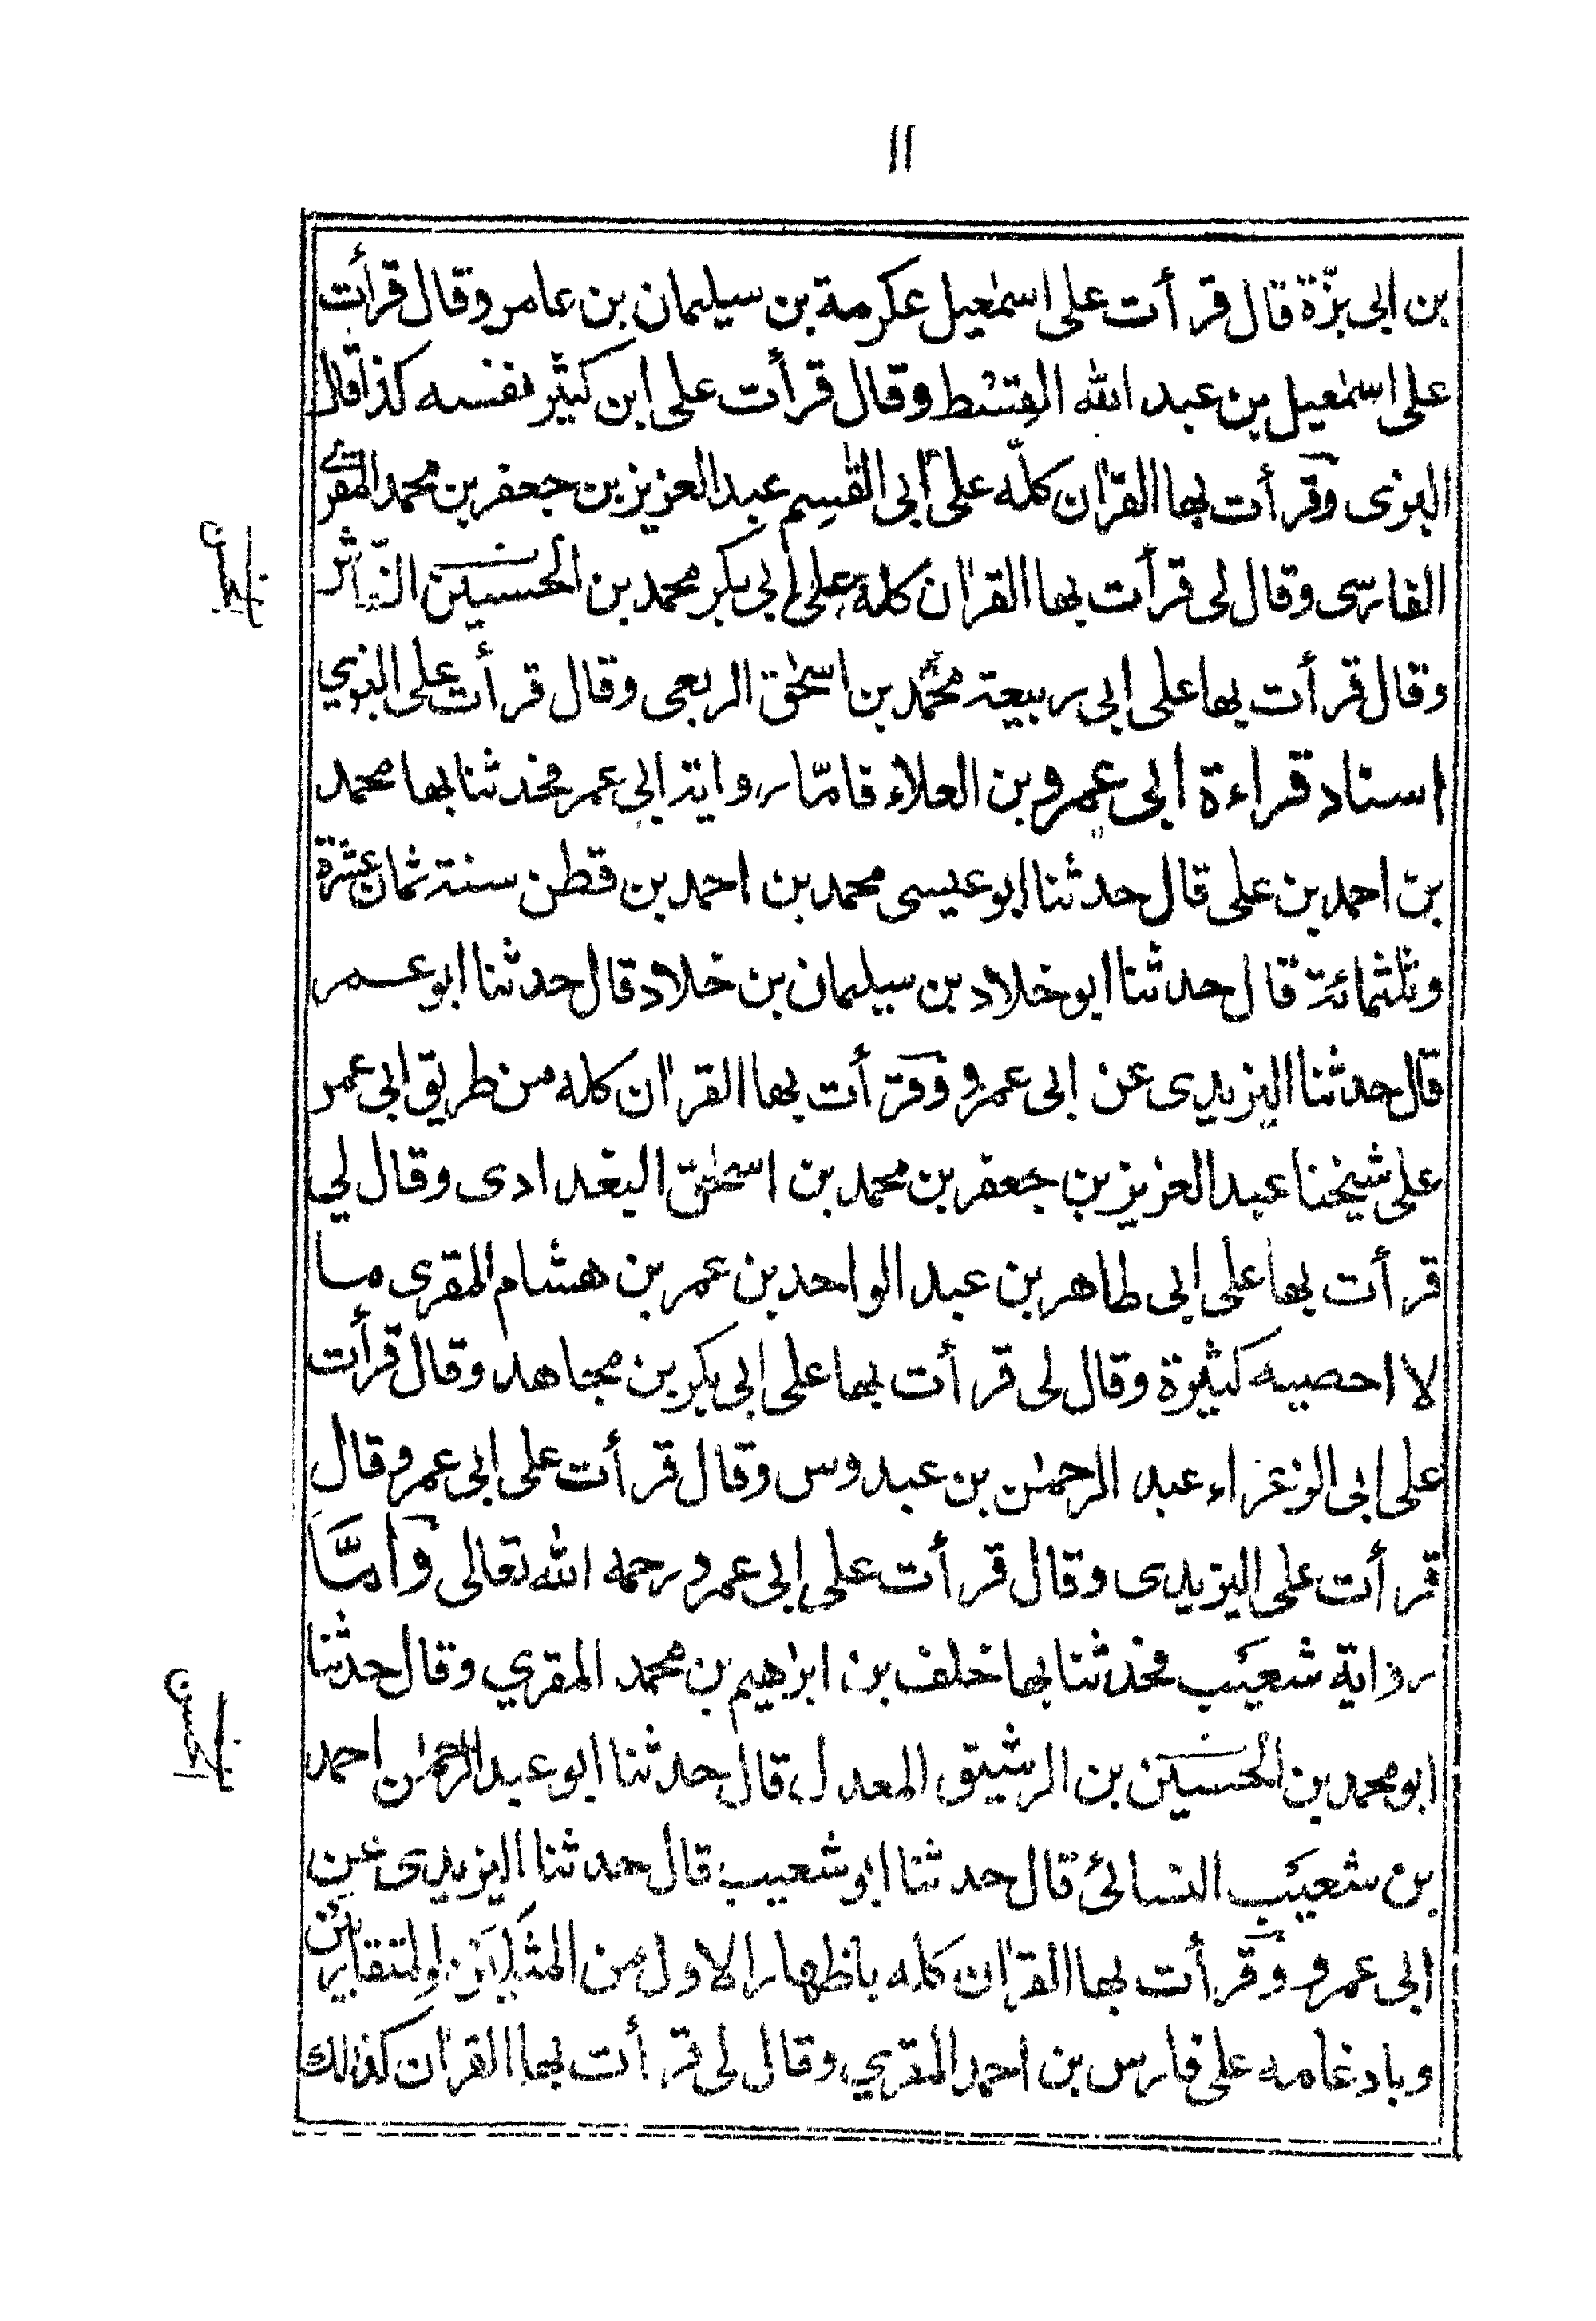 ١١
بن ابى بزّة قال قرأت على اسمٰعيل عكرمة بن سيليمان بن عامر وقال قرأت
على اسمٰعيل بن عبد الله القسط وقال قرأت على ابن كثير نفسه كذا قال
البزى وقرأت بها القرٰان كلّه على ابى القٰسِم عبد العزيز بن جعفر بن محمد المقرئ
الفارسى وقال لى قرأت بها القرٰان كله على ابى بكر محمد بن الحسين النقاش
وقال قرأت بها على ابى ربيعة محمّد بن اسحٰق الربعى وقال قرأت على البزي
اسناد قراءة ابى عمرو بن العلاء فامّا رواية ابى عمر فحدثنا بها محمد
بن احمد بن على قال حدثنا ابو عيسى محمد بن احمد بن قطن سنة ثمان عشرة
وثلثمائة قال حدثنا ابو خلاد بن سيليمان بن خلاد قال حدثنا ابو عمر
قال حدثنا اليزيدى عن ابى عمرو وقرأت بها القرٰان كله من طريق ابى عمر
على شيخنا عبد العزيز بن جعفر بن محمد بن اسحٰق البغدادى وقال لي
قرأت بها على ابى طاهر بن عبد الواحد بن عمر بن هشام المقرى ما
لا احصيه كثيرة وقال لى قرأت بها على ابى بكر بن مجاهد وقال قرأت
على ابى الزعراء عبد الرحمٰن بن عبدوس وقال قرأت على ابى عمرو قال
قرأت على اليزيدى وقال قرأت على ابى عمرو رحمه الله تعالى وَامَّا
رواية شعيَب فحدثنا بها خلف بن ابرٰهيم بن محمد المقري وقال حدثنا
ابو محمد بن الحسين بن الرشيق المعدل قال حدثنا ابو عبد الرحمٰن احمد
بن شعيَب النسائى قال حدثنا ابو شعيب قال حدثنا اليزيدى عن
ابى عمرو وقرأت بها القرٰان كله باظهار الاول من المثلَين والمتقاربين
وبادغامه على فارس بن احمد المقري وقال لى قرأت بها القرٰان كذلك